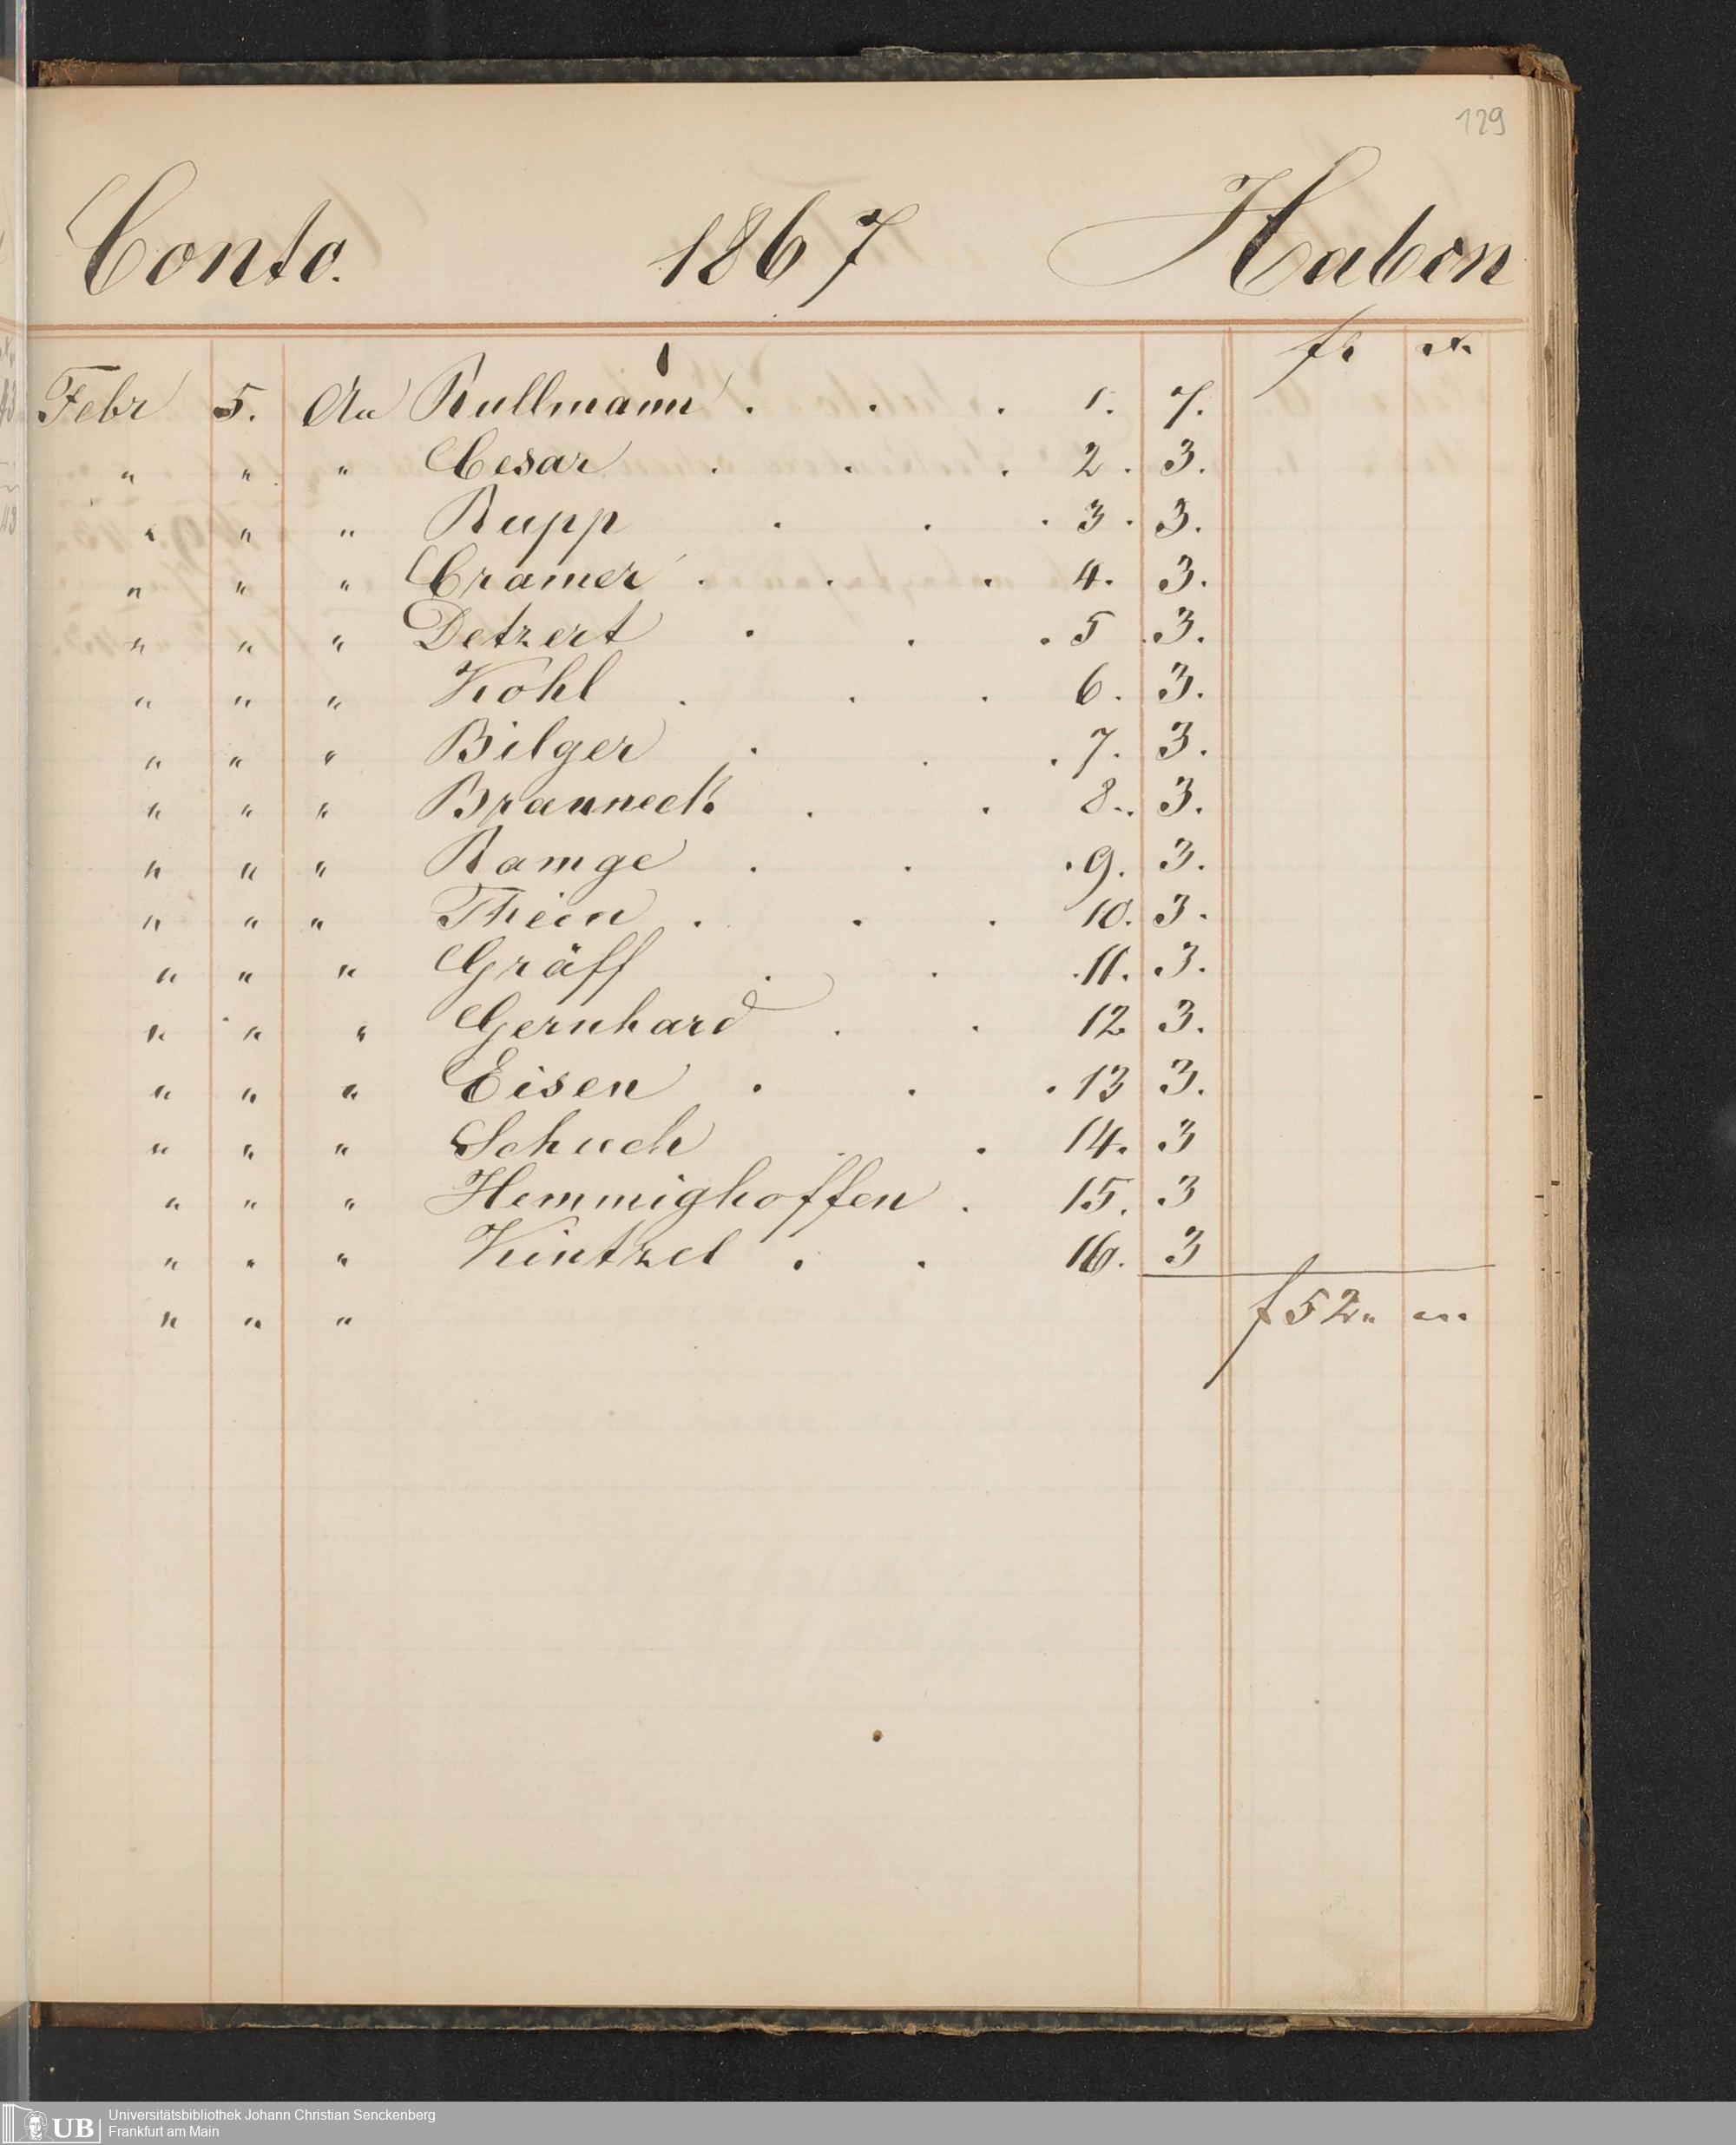 129
Conto. 1867 Haben
fr x.
Febr 5. An Kullmann . . . 1. 7.
" " " Cesar . . . 2. 3.
" " " Rupp . . . 3. 3.
" " " Cramer . . . 4. 3.
" " " Detzert . . . 5 3.
" " " Kohl . . . 6. 3.
" " " Bilger . . . 7. 3.
" " " Branneck . . 8. 3.
" " " Ramge . . . 9. 3.
" " " Thein . . . 10. 3.
" " " Gräff . . . 11. 3.
" " " Gernhard . . 12 3.
" " " Eisen . . . 13 3.
" " " Schuch . . 14. 3
" " " Hemmighoffen . 15. 3
" " " Kintzel . . 16. 3
" " " f 52 " "
UB Universitätsbibliothek Johann Christian Senckenberg
Frankfurt am Main